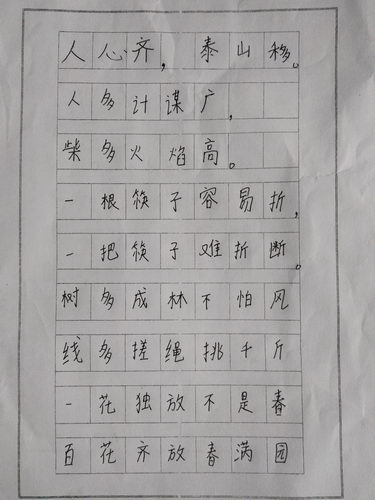 人人心齐,泰山移。
人多计谋广,
柴多火焰高。
一根筷子容易折,
一把筷子难折断。
树多成林不怕风
线多搓绳挑千斤
一花独放不是春
百花齐放春满园